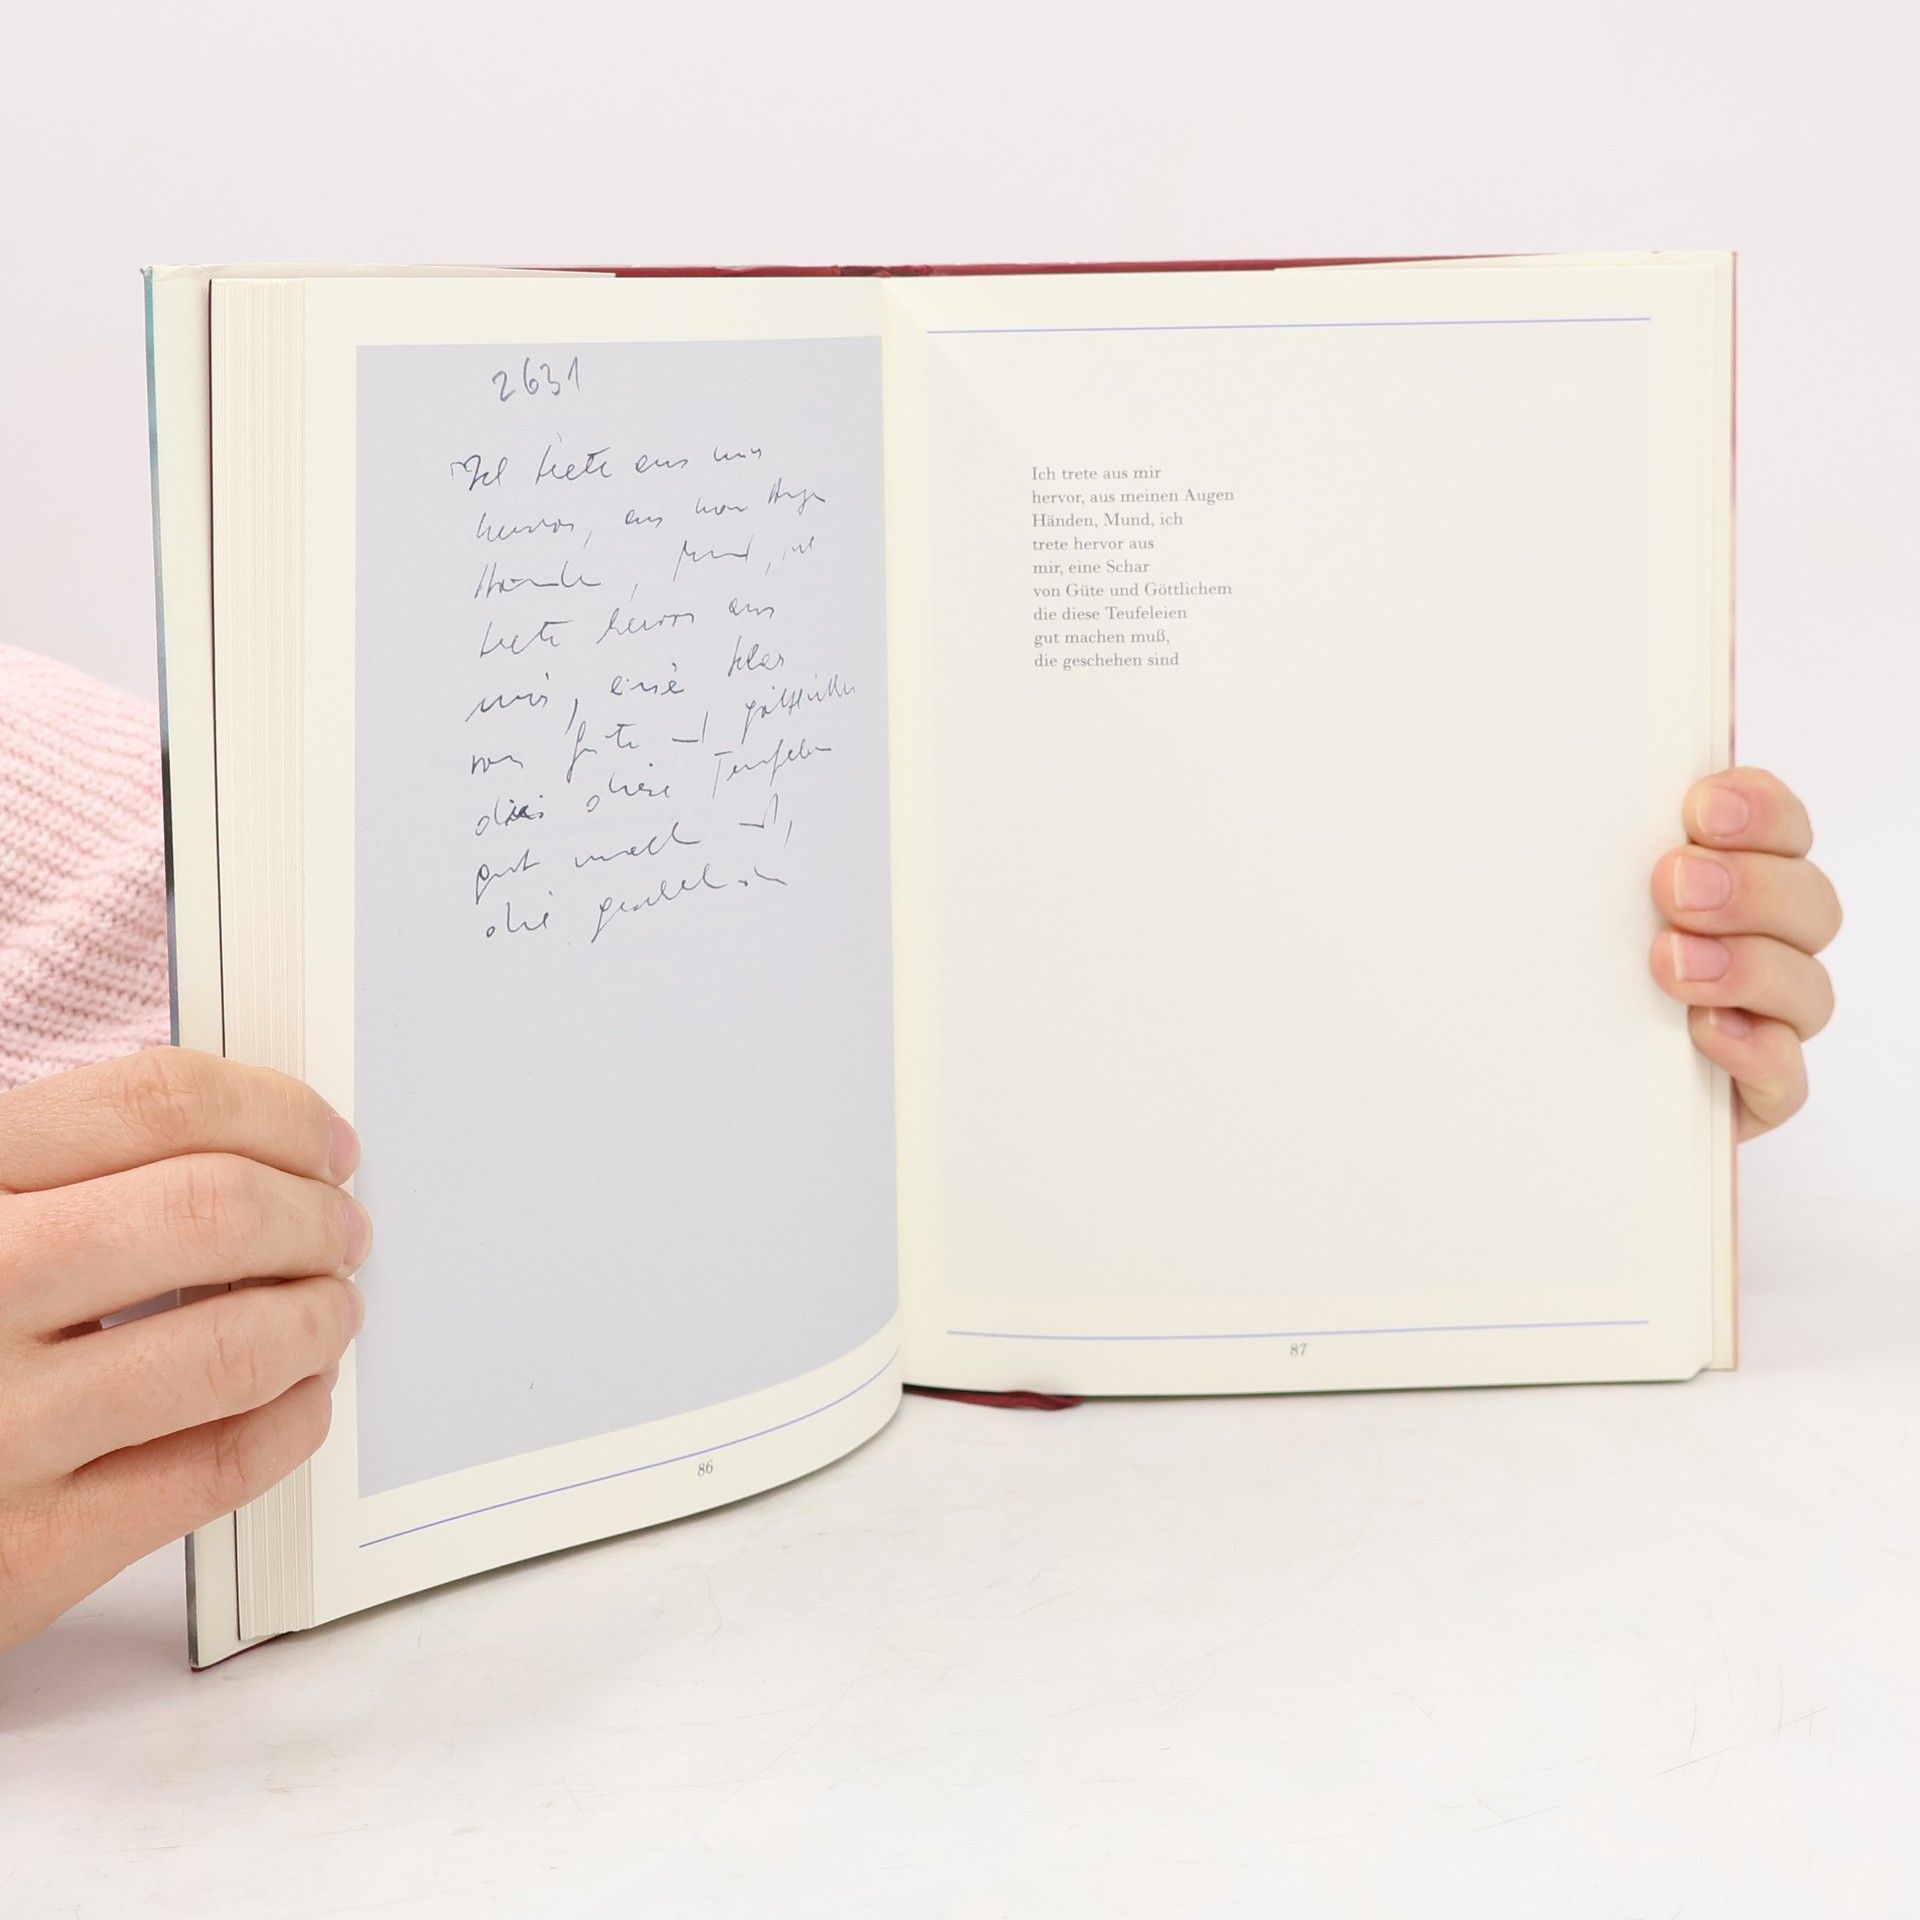 2631
Ich trete aus mir
hervor, aus Augen
Hände, Mund, ich
trete hervor aus
mir, eine
von Güte und
die diese Teufeleien
gut mach
die
86
Ich trete aus mir
hervor, aus meinen Augen
Händen, Mund, ich
trete hervor aus
mir, eine Schar
von Güte und Göttlichem
die diese Teufeleien
gut machen muß,
die geschehen sind
87